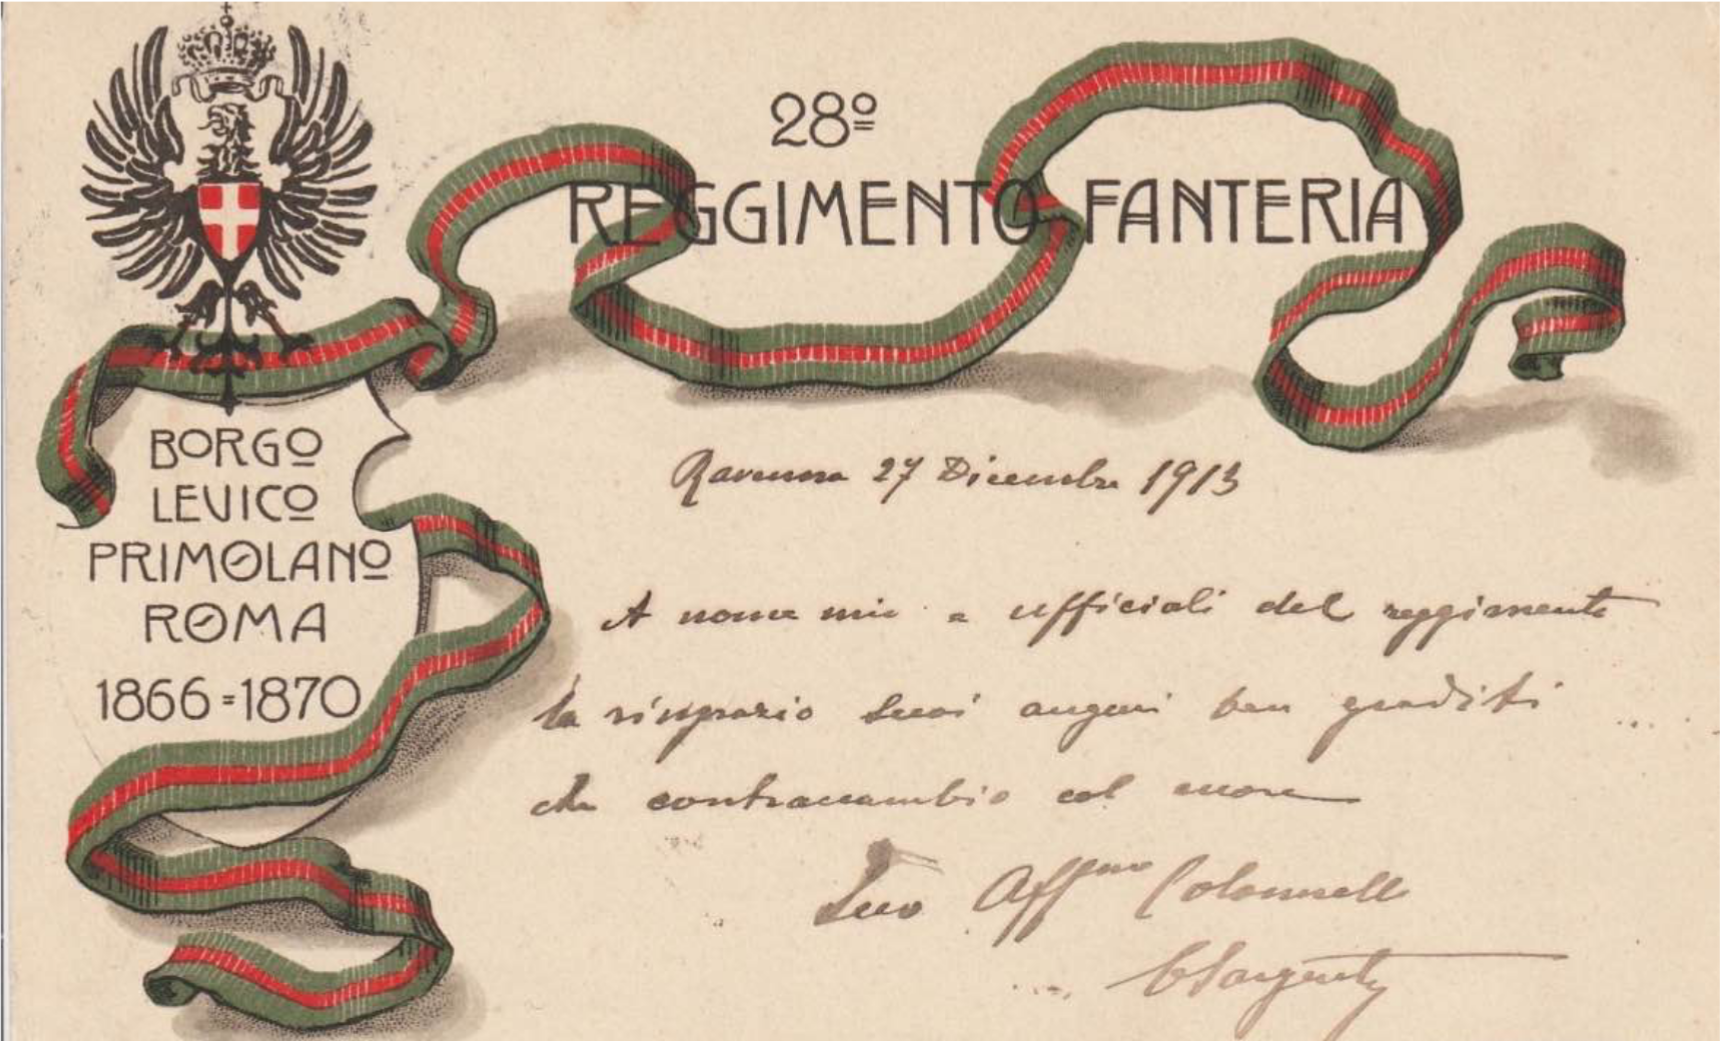 28º
REGGIMENTO FANTERIA
BORGO
LEVICO
PRIMOLANO
ROMA
1866=1870
Ravenna 27 Dicembre 1913
A nome mio e ufficiali del reggimento
la ringrazio suoi auguri ben graditi
che contraccambio col cuore
Suo Aff.mo Colonnello